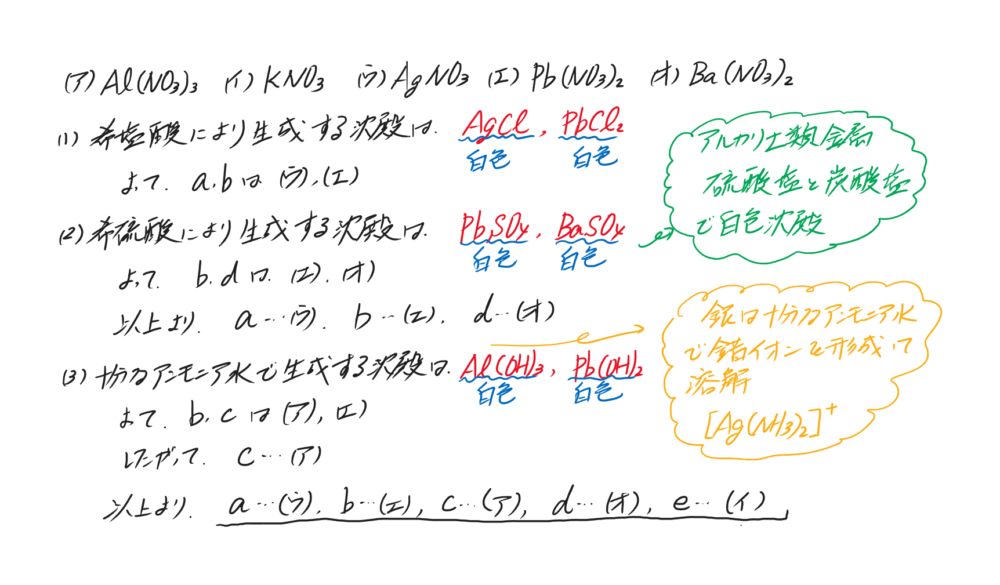 (ア) Al(NO₃)₃ (イ) KNO₃ (ウ) AgNO₃ (エ) Pb(NO₃)₂ (オ) Ba(NO₃)₂
(1) 希塩酸により生成する沈殿は. AgCl, PbCl₂
白色 白色
よって. a, b は (ウ), (エ)
アルカリ土類金属
硫酸塩と炭酸塩
で白色沈殿
(2) 希硫酸により生成する沈殿は. PbSO₄, BaSO₄
白色 白色
よって. b, d は. (エ). (オ)
以上より. a…(ウ). b…(エ). d…(オ)
銀は十分なアンモニア水
で錯イオンを形成して
溶解
[Ag(NH₃)₂]⁺
(3) 十分なアンモニア水で生成する沈殿は. Al(OH)₃, Pb(OH)₂
白色 白色
よって. b, c は (ア), (エ)
したがって. c…(ア)
以上より. a…(ウ). b…(エ), c…(ア), d…(オ), e…(イ)